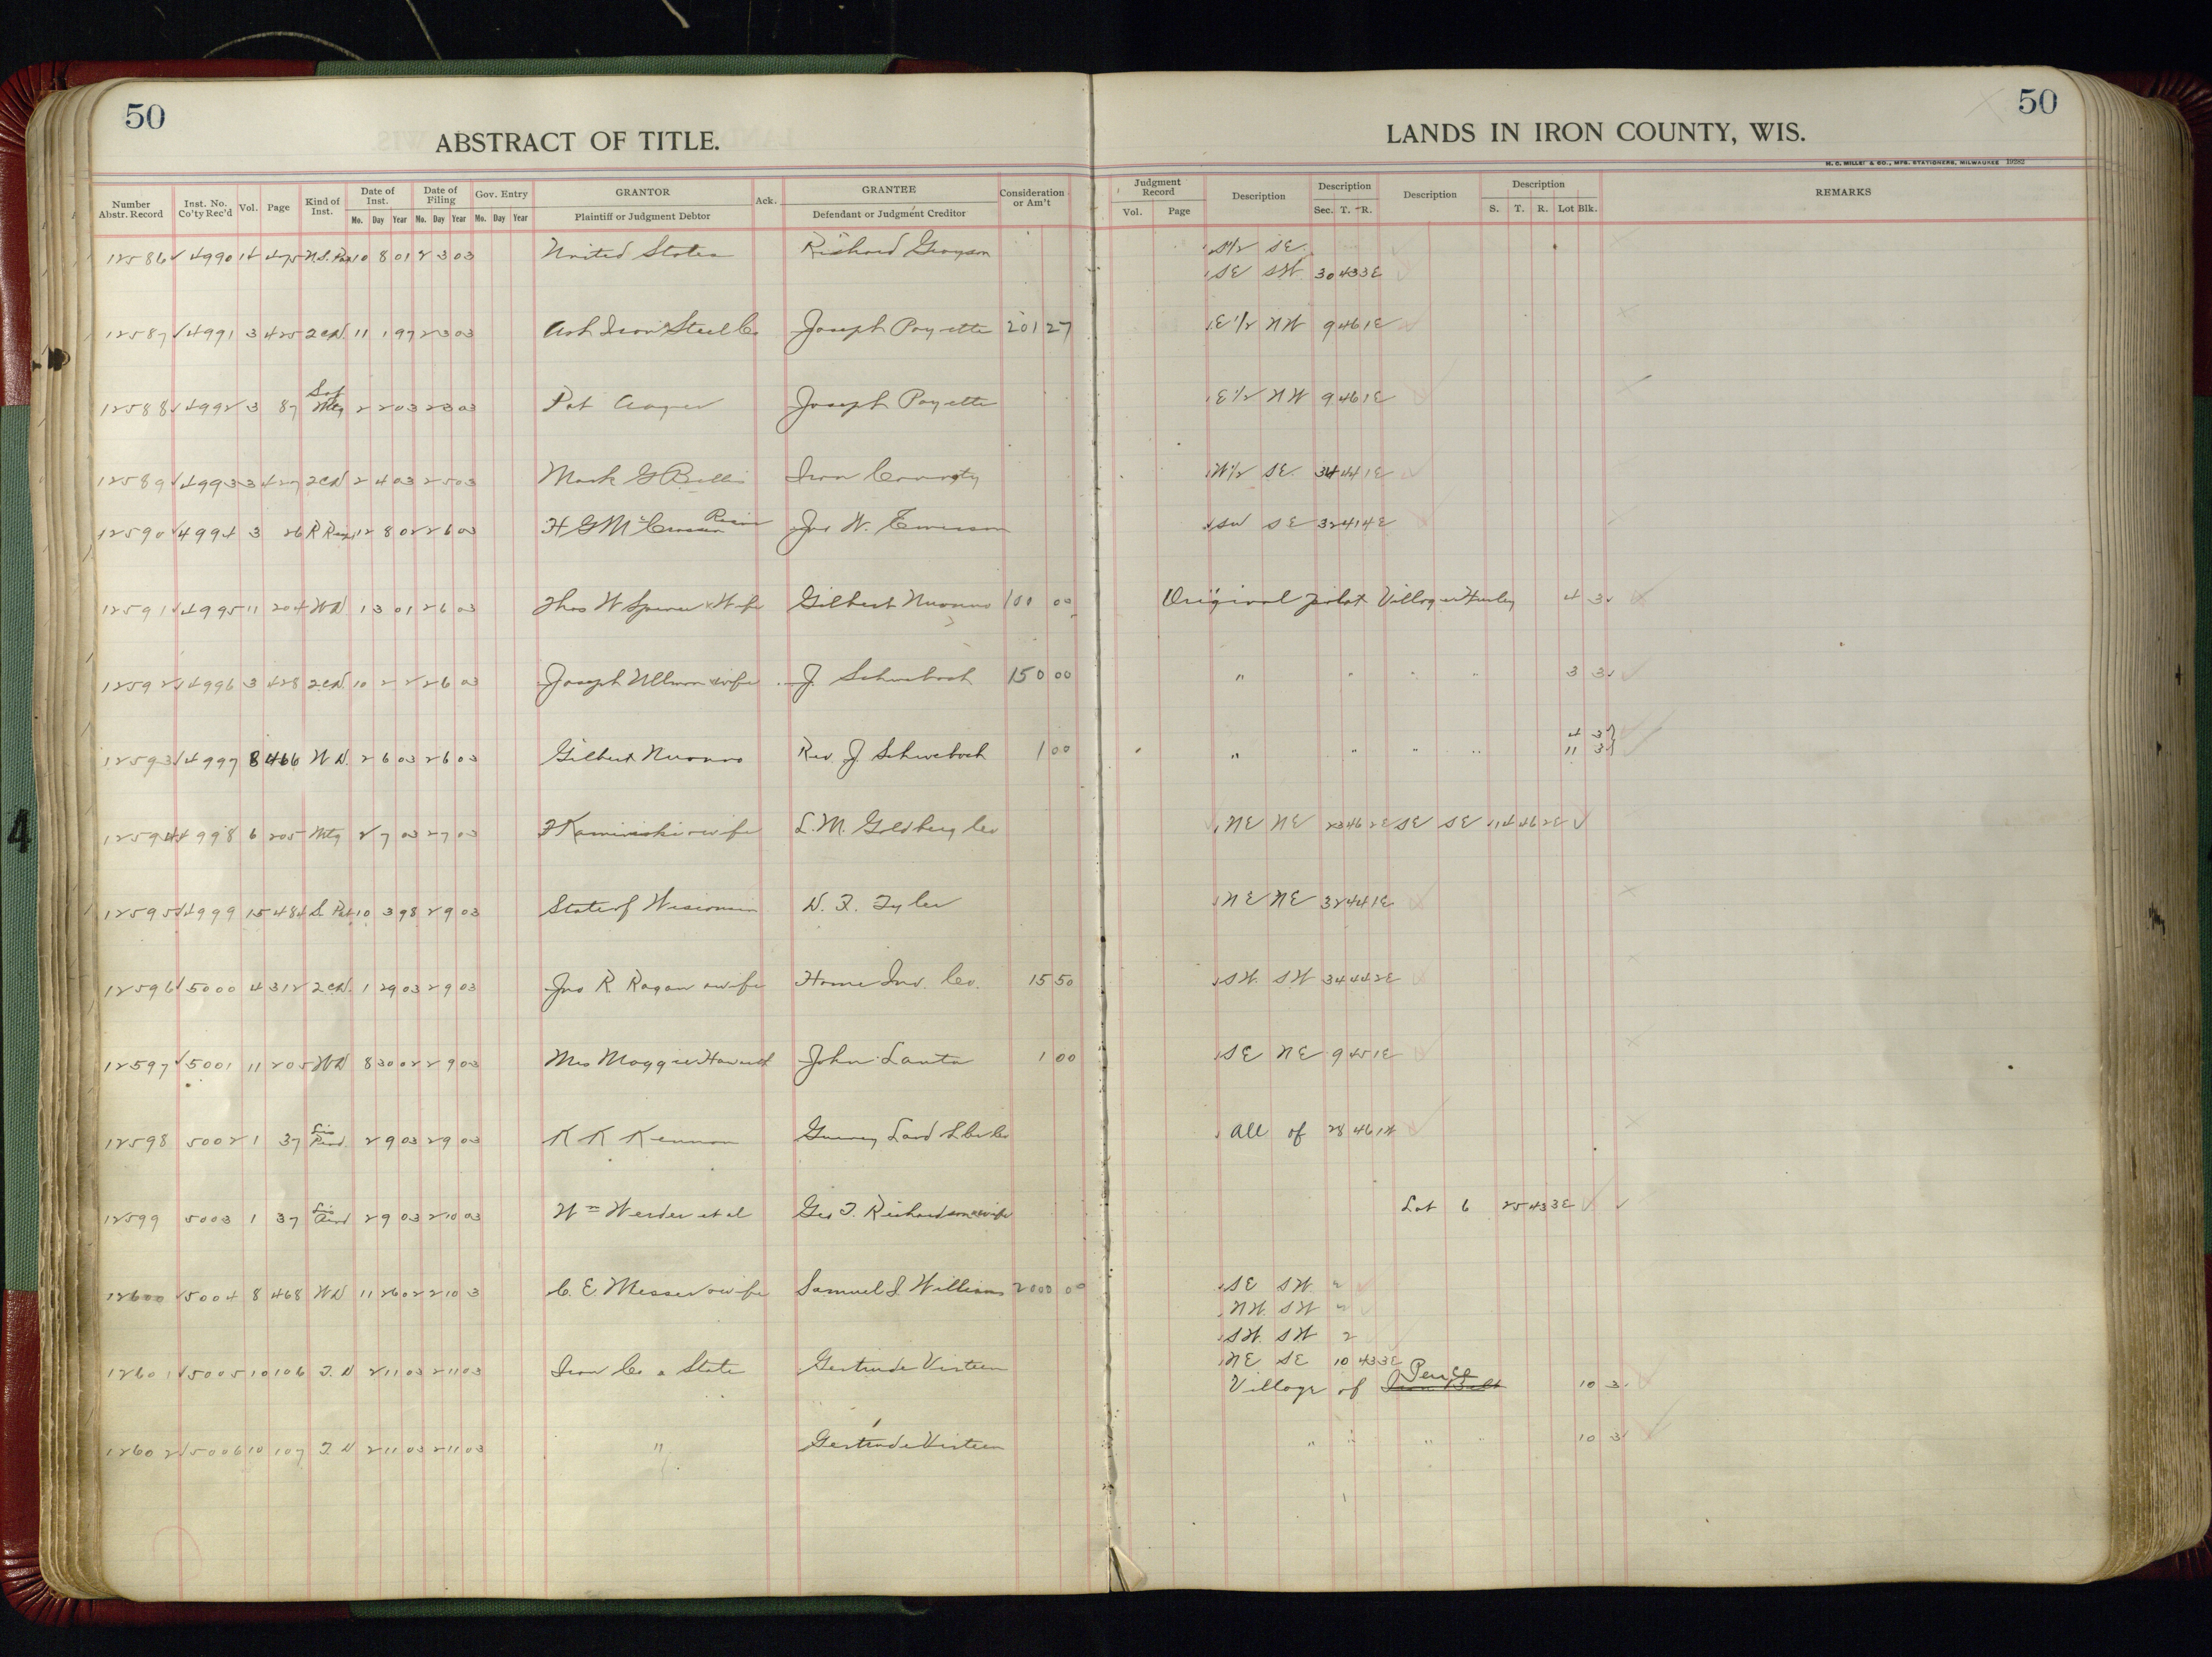 50
50
ABSTRACT OF TITLE.
LANDS IN IRON COUNTY, WIS.
H. C. MILLER CO., MFG. STATIONERS, MILWAUKEE 19282
Number Abstr. Record Inst. No. Co'ty Rec'd Vol. Page Kind of Inst. Date of Inst. Mo. Day Year Date of Filing Mo. Day Year Gov. Entry Mo. Day Year GRANTOR Plaintiff or Judgment Debtor Ack. GRANTEE Defendant or Judgment Creditor Consideration or Am't
Judgment Record Vol. Page Description Description Sec. T. R. Description Description S. T. R. Lot Blk. REMARKS
12586 4990 14 475 U.S. Pat 10 8 01 2 3 03 United States Richard Grayson S1/2 SE
SE SW 30 43 3E
12587 4991 3 425 2CD. 11 1 97 2 3 03 Ash Iron & Steel Co Joseph Payette 201 27 E1/2 NW 9 46 1E
12588 4992 3 87 Sat Mtg 2 2 03 2 3 03 Pat Joseph Payette E1/2 NW 9 46 1E
12589 4993 3 427 2CD 2 4 03 2 5 03 Mark G Iron County W1/2 SE. 34 44 1E
12590 4994 3 26 R 12 8 02 2 6 03 H G McCrossen Jno W. Emerson SW SE 32 41 4E
12591 4995 11 204 WD 1 3 01 2 6 03 Thos W Spence & Wife Gilbert 100 00 Original plat Village Hurley 4 3
12592 4996 3 428 2CD. 10 2 2 2 6 03 Joseph Ullman & wife J. Schwebach 150 00 " " " " 3 3
12593 4997 8 466 WD. 2 6 03 2 6 03 Gilbert Rev J. Schwebach 1 00 " " " " 4 3
11 3
12594 4998 6 205 Mtg 2 7 03 2 7 03 F Kaminski & wife L. M. Goldberg Co NE NE 23 46 2E SE SE 14 46 2E
12595 4999 15 484 St Pat 10 3 98 2 9 03 State of Wisconsin D. F. Tyler NE NE 32 44 1E
12596 5000 4 312 2CD. 1 29 03 2 9 03 Jno R Ragan & wife Home Inv. Co. 15 50 SW. SW 34 44 2E
12597 5001 11 205 WD 8 30 02 2 9 03 Mrs Maggie Haworth John Lanto 1 00 SE NE 9 45 1E
12598 5002 1 37 Lis Pend. 2 9 03 2 9 03 K K Kennan Gurney Land & Lbr Co All of 28 46 1W
12599 5003 1 37 Lis Pend 2 9 03 2 10 03 Wm Werder et al Geo T. Richardson & wife Lot 6 25 43 3E
12600 5004 8 468 WD 11 26 02 2 10 3 C. E. Messer & wife Samuel J. Williams 2000 00 SE SW 2
NW. SW 2
SW. SW 2
NE SE 10 43 3E
12601 5005 10 106 T. D 2 11 03 2 11 03 Iron Co & State Gertrude Virteen Village of Iron Belt Pence 10 3
12602 5006 10 107 T. D 2 11 03 2 11 03 " Gertrude Virteen " " " " 10 3
4